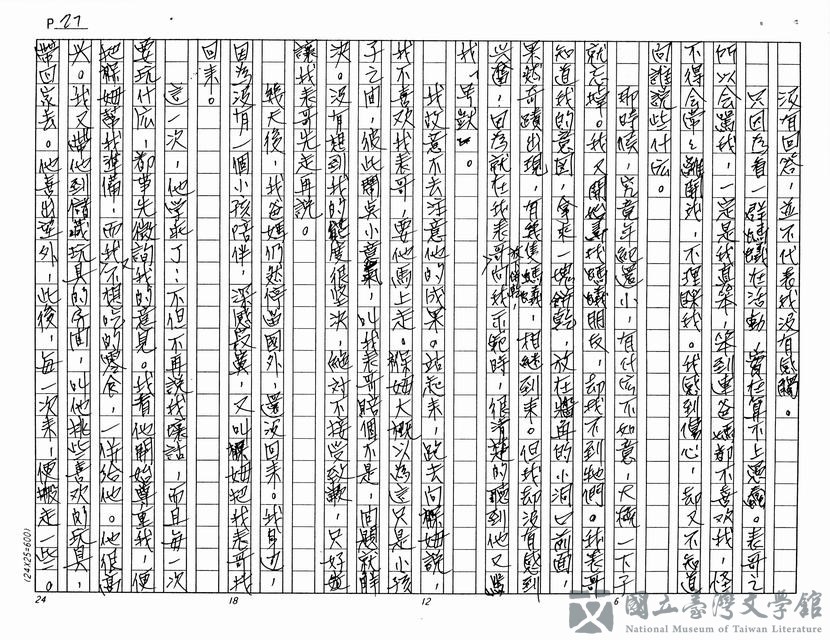 P.27
沒有回答，並不代表我沒有感觸。
只因為看一群螞蟻在活動，實在算不上愚蠢。表哥之
所以會罵我，一定是我真笨，笨到連爸媽都不喜歡我，怪
不得會常常離開我，不理睬我。我感到傷心，却又不知道
向誰說些什広。
那時候，究竟年紀還小，有什広不如意，大概一下子
就忘掉。我又開始尋找螞蟻朋友，却找不到牠們。我表哥
知道我的意圖，拿來一塊餅乾，放在牆角的小洞口前面，
果然奇蹟出現，有幾隻螞蟻，相繼到來。但我却沒有感到
興奮，因為就在我表哥向我示範時，很清楚的聽到他又罵
我「
我故意不去注意他的成果。站起來，跑去向褓姆說，
我不喜歡我表哥，要他馬上走。褓姆大概以為這只是小孩
子之間，彼此鬧臭小意氣，叫我表哥賠個不是，問題就解
決。沒有想到我的態度很堅決，絕對不接受致歉，只好
讓我表哥先走再說。
幾天後，我爸媽仍然停留國外，還沒回來。我身边，
因為沒有一個小孩陪伴，深感寂寞，又叫褓姆把我表哥找
回來。
這一次，他學乖了：不但不再說我壞話，而且每一次
要玩什広，都事先徵詢我的意見。我看他開始尊重我，便
把褓姆替我準備，而我又不想吃的零食，一併給他。他很高
兴。我又帶他到儲藏玩具的房間，叫他挑些喜欢的玩具，
帶回家去。他喜出望外，此後，每一次來，便搬走一些。
24 18 12 6
(24X25=600)
國立臺灣文學館
National Museum of Taiwan Literature